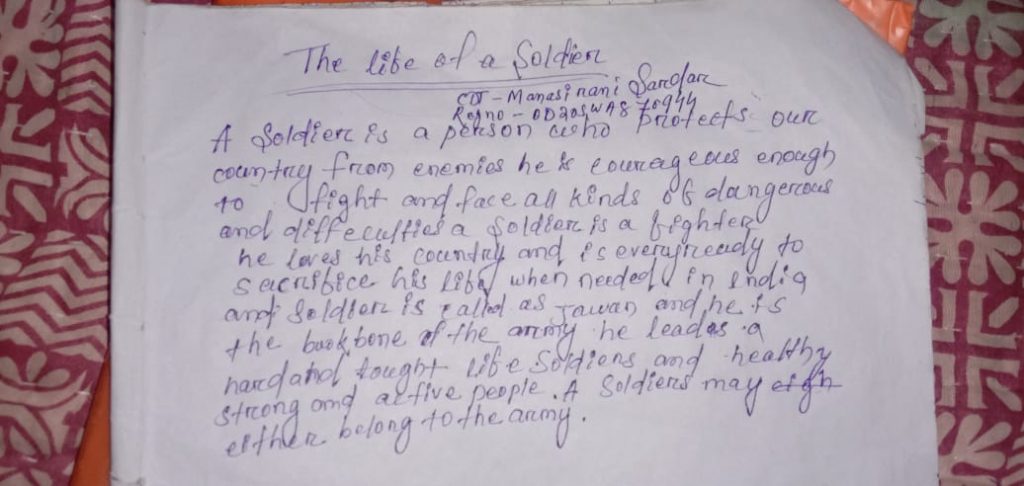 The life of a Soldier
CDT - Manasi rani Sardar
Regno - OD20SWA870944
A Soldier is a person who protects our
country from enemies he is courageous enough
to fight and face all kinds of dangerous
and difficulties a Soldier is a fighter
he loves his country and is every ready to
sacrifice his life when needed in India
and Soldier is called as Jawan and he is
the backbone of the army he leads a
hard and tought life Soldiers and healthy
strong and active people. A Soldiers may
either belong to the army.